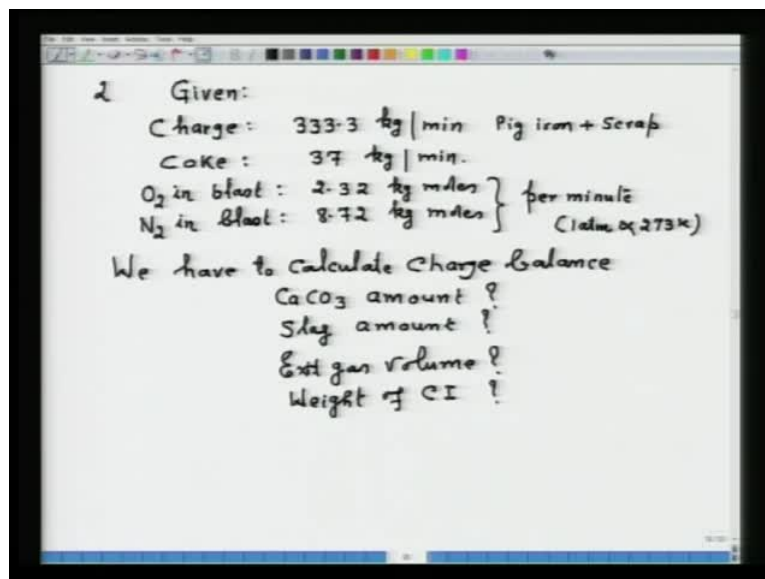 2 Given:
Charge: 333.3 kg/min Pig iron + Scrap
Coke: 37 kg/min.
O2 in blast: 2.32 kg moles } per minute
N2 in blast: 8.72 kg moles } (1 atm & 273K)
We have to calculate Charge balance
CaCO3 amount ?
Slag amount ?
Exit gas volume ?
Weight of CI ?